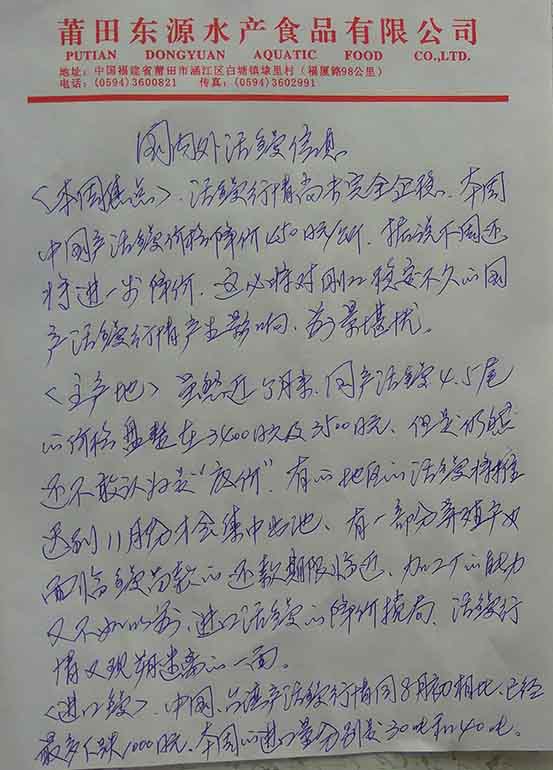 莆田东源水产食品有限公司
PUTIAN DONGYUAN AQUATIC FOOD CO.,LTD.
地址：中国福建省莆田市涵江区白塘镇埭里村（福厦路98公里）
电话：(0594)3600821 传真：(0594)3602991
国内外活鳗信息
〈本周焦点〉.活鳗行情尚未完全企稳.本周
中国产活鳗价格降价450日元/公斤.据说下周还
将进一步降价.这必将对刚刚稳定不久的国
产活鳗行情产生影响、前景堪忧。
〈主产地〉虽然近1个月来.国产活鳗4.5尾
的价格盘整在3400日元及3500日元、但是仍然
还不敢认为是“底价”.有的地区的活鳗将推
迟到11月份才会集中出池、有一部分养殖户又
面临鳗苗款的还款期限临近、加工厂的能力
又不如以前、进口活鳗的降价搅局.活鳗行
情又现朔迷离的一面。
〈进口鳗〉.中国、台湾产活鳗行情同8月初相比、已经
最多下跌1000日元.本周的进口量分别是30吨和40吨.